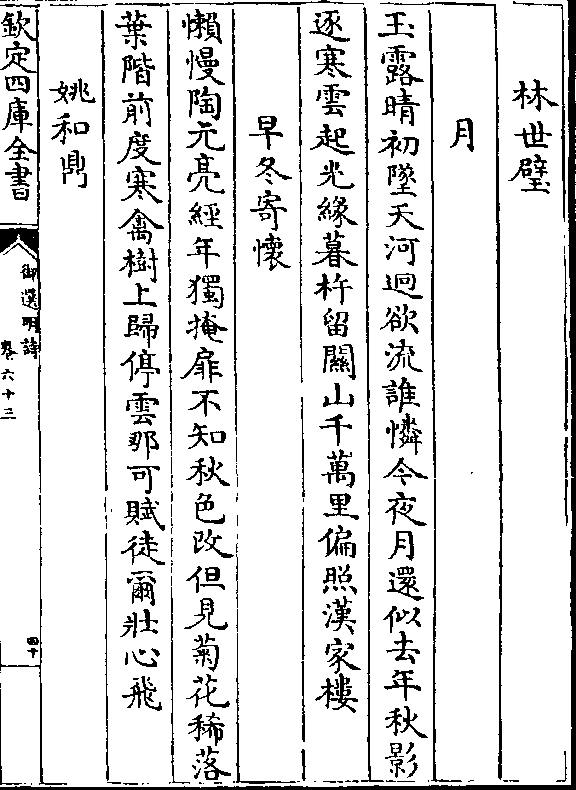 林世璧
月
玉露晴初墜天河迥欲流誰憐今夜月還似去年秋影
逐寒雲起光緣暮杵留關山千萬里偏照漢家樓
早冬寄懷
懶慢陶元亮經年獨掩扉不知秋色改但見菊花稀落
葉階前度寒禽樹上歸停雲那可賦徒爾壯心飛
姚和鼎
欽定四庫全書
御選明詩
卷六十三
四十